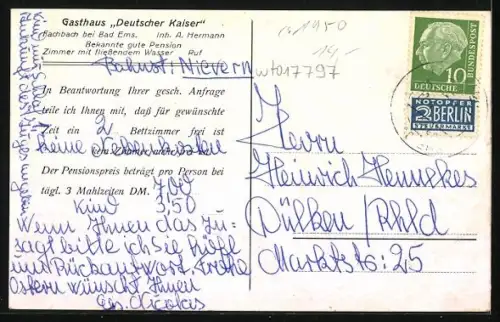 Gasthaus „Deutscher Kaiser"
Fachbach bei Bad Ems. Inh. A. Hermann
Bekannte gute Pension
Zimmer mit fließendem Wasser Ruf
Bahnst: Nievern
In Beantwortung Ihrer gesch. Anfrage
teile ich Ihnen mit, daß für gewünschte
Zeit ein 2 Bettzimmer frei ist
keine Nebenkosten
Der Pensionspreis beträgt pro Person bei
tägl. 3 Mahlzeiten DM. 7,00
Kind 3,50
Wenn Ihnen das zu-
sagt bitte ich Sie höfl
um Rückantwort. Frohe
Ostern wünscht Ihnen
1950
wto17797
10
DEUTSCHE
NOTOPFER
2 BERLIN
STEUERMARKE
Herrn
Heinrich Hennekes
Dülken/Rhld
Marktstr: 25